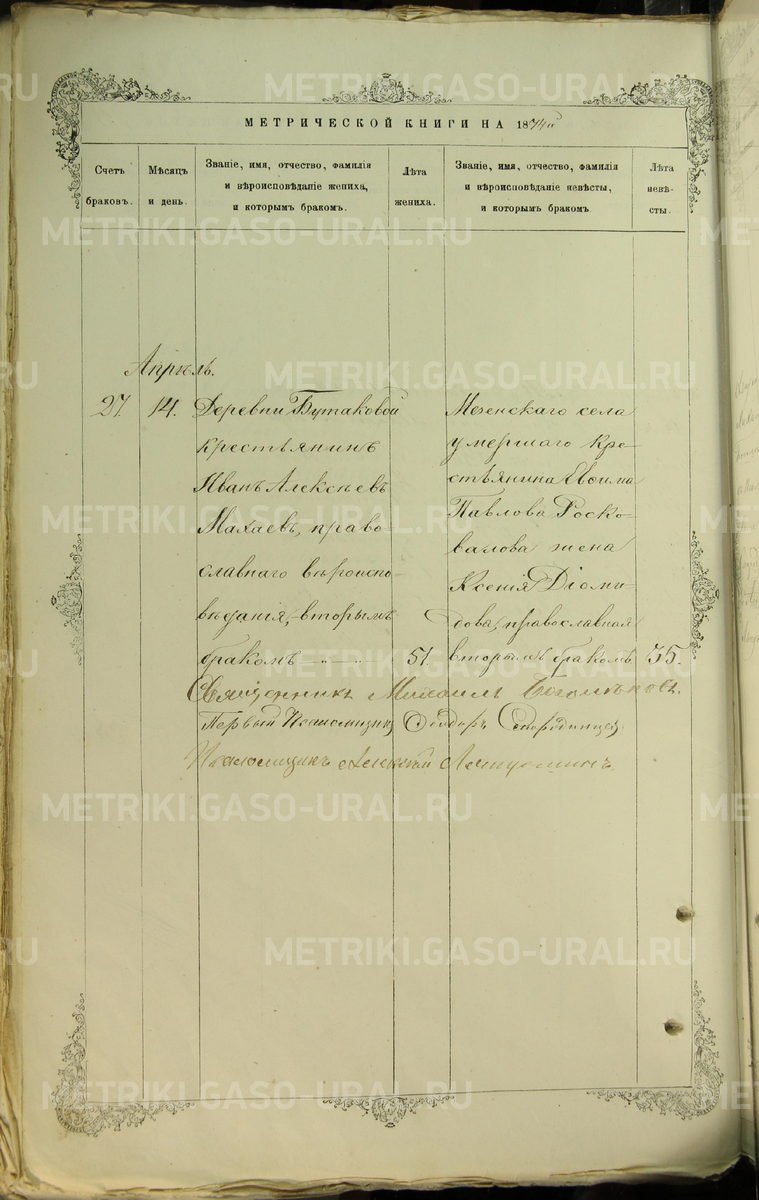 METRIKI.GASO-URAL.RU
МЕТРИЧЕСКОЙ КНИГИ НА 1874й
Счетъ браковъ.
Мѣсяцъ и день.
Званіе, имя, отчество, фамилія
и вѣроисповѣданіе жениха,
и которымъ бракомъ.
Лѣта
жениха.
Званіе, имя, отчество, фамилія
и вѣроисповѣданіе невѣсты,
и которымъ бракомъ
Лѣта
невѣ-
сты.
Апрѣль.
27. 14.
Деревни Бутаковой
крестьянинъ
Иванъ Алексѣевъ
Махаевъ, право-
славнаго вѣроиспо-
вѣданія, вторымъ
бракомъ
51.
Мезенскаго села
умершаго кре-
стьянина Евѳима
Павлова Роско-
валова жена
Ксенія Діоми-
дова, православная
вторымъ бракомъ
35.
Священникъ Михаилъ
Первый Псаломщикъ Ѳеодоръ
Псаломщикъ Алексѣй